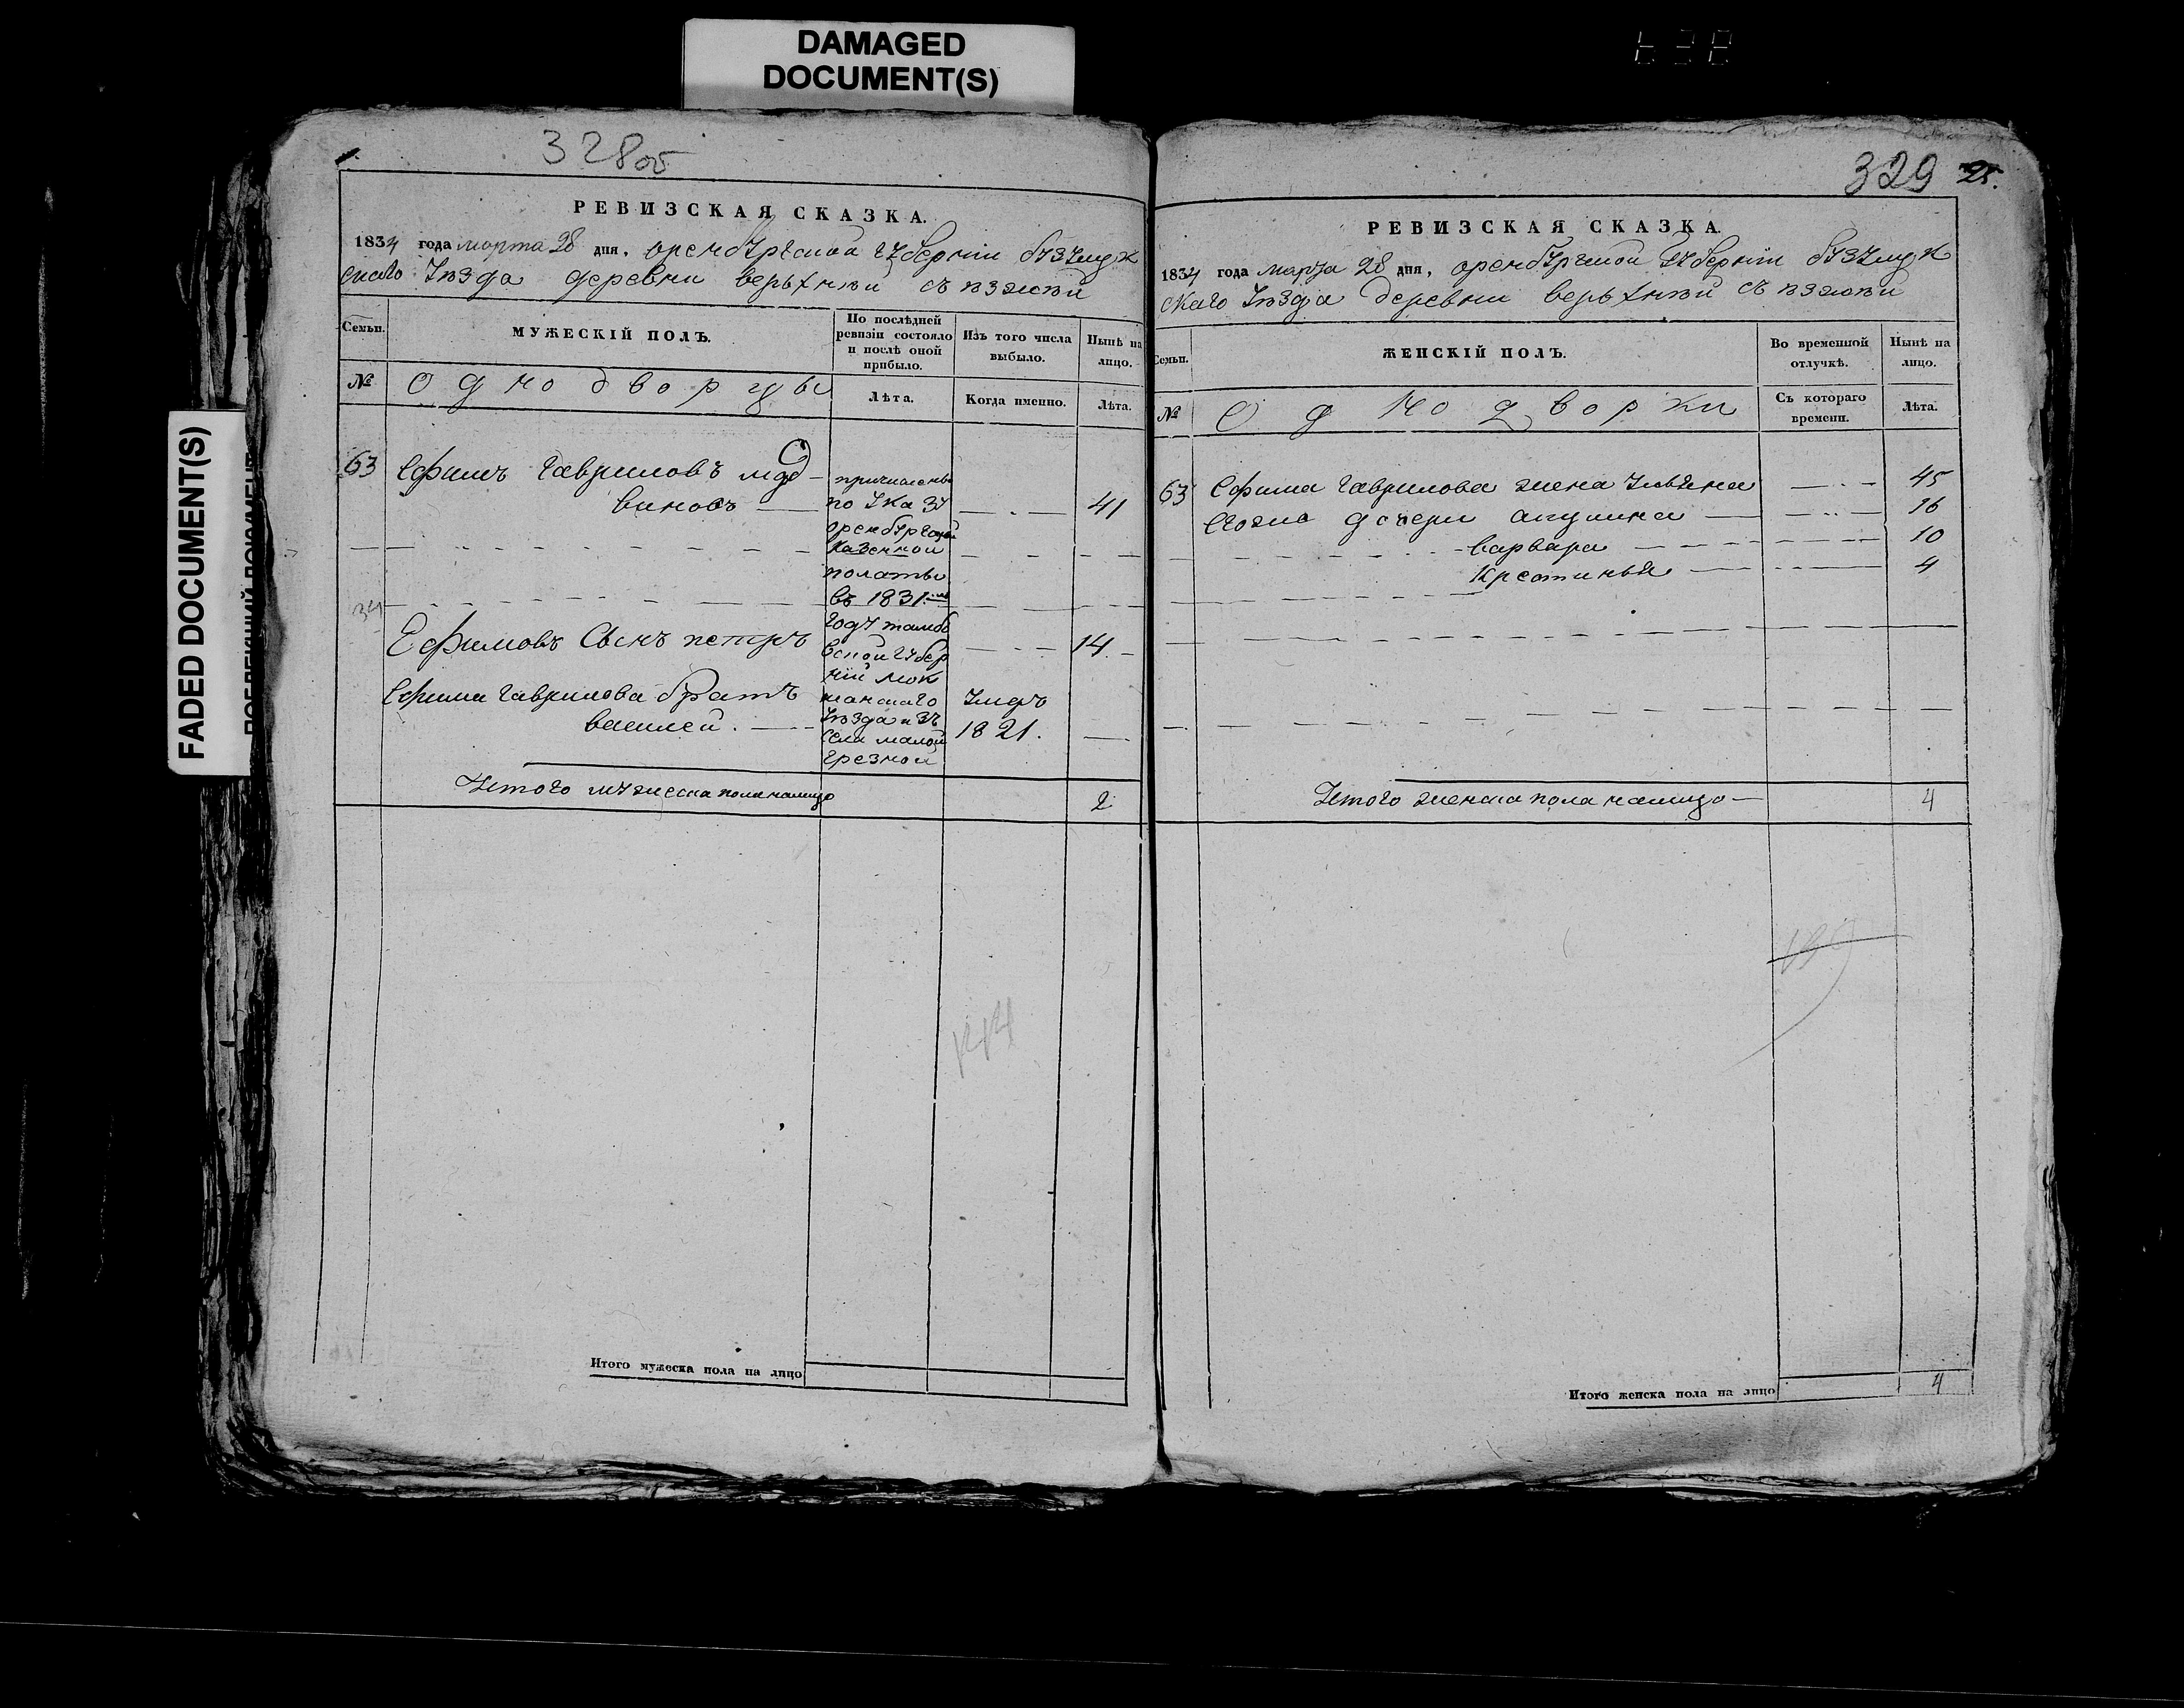 DAMAGED
DOCUMENT(S)
FADED DOCUMENT(S)
328об
РЕВИЗСКАЯ СКАЗКА.
1834 года марта 28 дня. оренбургской губернии бузулук
скаго уезда деревни верьхней съезжей
Семьи.
МУЖЕСКІЙ ПОЛЪ.
По послѣдней
ревизіи состояло
и послѣ оной
прибыло.
Изъ того числа
выбыло.
Нынѣ на
лицо.
№
Однодворцы
Лѣта.
Когда именно.
Лѣта.
63 Ефимъ Гавриловъ
виновъ
41
причислены
по указу
оренбургской
казенной
полаты
въ 1831мъ
году тамбо
вской губер
ній мок
шанскаго
уезда изъ
села малой
грезной
34
Ефимовъ Сынъ петръ 14
Ефима Гаврилова братъ
василей.
умръ
1821.
Итого мужеска пола налицо 2
Итого мужеска пола на лицо
329 25.
РЕВИЗСКАЯ СКАЗКА.
1834 года марта 28 дня, оренбургской губерніи бузулук
скаго уезда деревни верьхней съезжей
Семьи.
ЖЕНСКІЙ ПОЛЪ.
Во временной
отлучкѣ.
Нынѣ на
лицо.
№
Однодворки
Съ котораго
времени.
Лѣта.
63 Ефима Гаврилова жена Ульяна 45
Егожъ дочери акулина 16
варвара 10
крестинья 4
Итого женска пола налицо 4
Итого женска пола на лицо 4